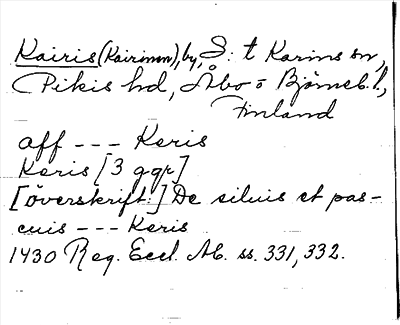 Kairis (Kairinen), by, S:t Karins sn,
Pikis hd, Åbo o Björneb. l.,
Finland
aff --- Keris
Keris [3 ggr]
[överskrift:] De siluis et pas-
cuis --- Keris
1430 Reg. Eccl. Ab. ss. 331, 332.